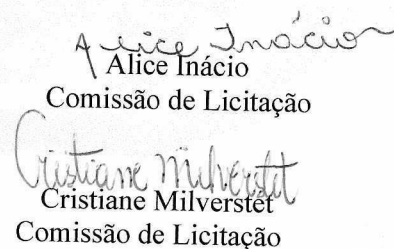 Alice Inácio
Alice Inácio
Comissão de Licitação
Cristiane Milverstet
Cristiane Milverstét
Comissão de Licitação